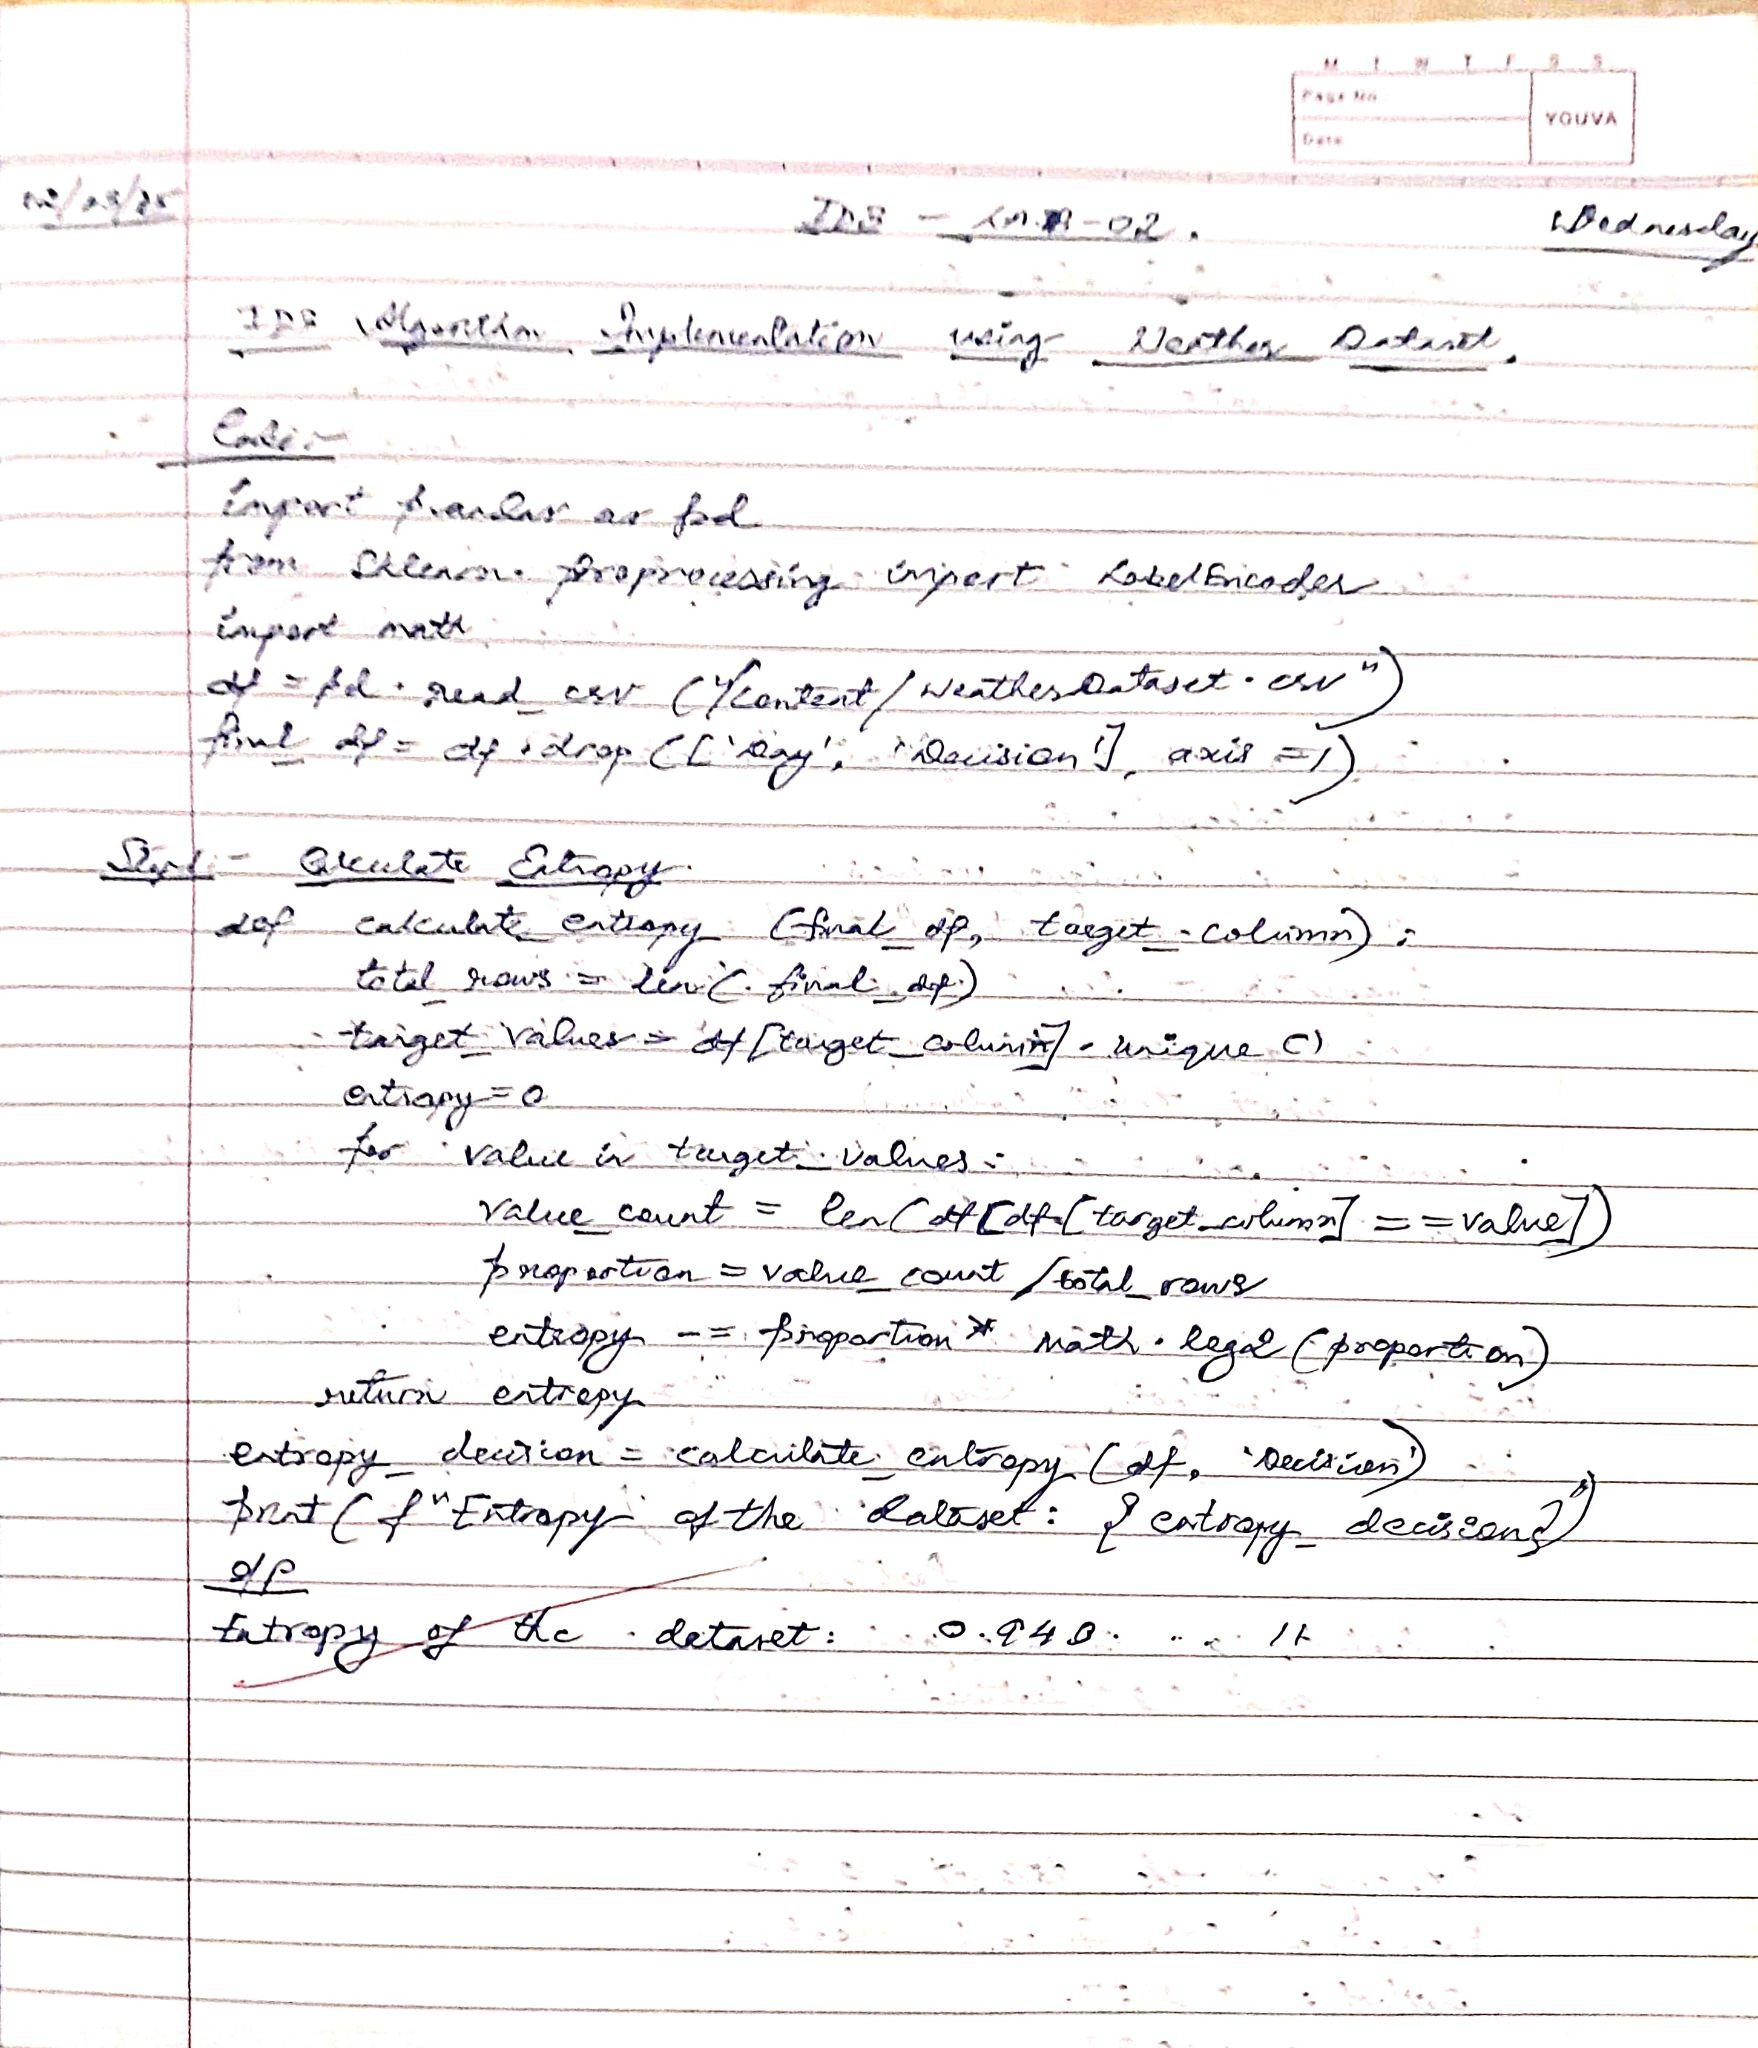 M T W T F S S
Page No.
YOUVA
Date
Wednesday
LAB-02.
Algorithm Implementation using Weather Dataset.
Code:-
import pandas as pd
from Sklearn.preprocessing import LabelEncoder
import math
df = pd.read_csv ("/content/WeatherDataset.csv")
final_df = df.drop (['Day', 'Decision'], axis =1)
Step1 - Calculate Entropy
def calculate_entropy (final_df, target_column):
total_rows = len(final_df)
target_values = df[target_column].unique ()
entropy=0
for value in target_values:
value_count = len(df[df[target_column] == value])
proportion = value_count/total_rows
entropy -= proportion * math.log2 (proportion)
return entropy
entropy_decision = calculate_entropy (df, 'Decision')
print (f"Entropy of the dataset: {entropy_decision}")
o/p
Entropy of the dataset: 0.940